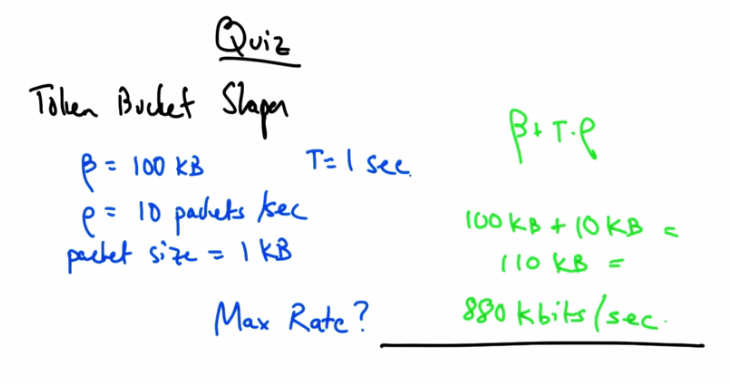 Quiz
Token Bucket Shaper
β = 100 KB
T = 1 sec.
ρ = 10 packets/sec
packet size = 1 KB
Max Rate?
β + T·ρ
100 KB + 10 KB =
110 KB =
880 kbits/sec.